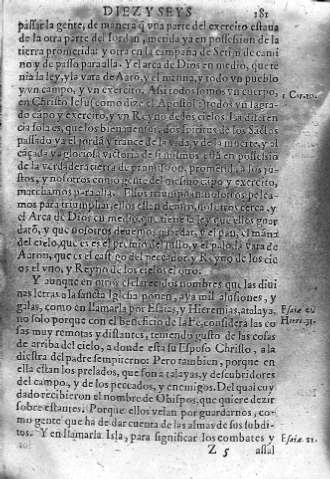 DIEZ Y SEYS 181
passar la gente, de manera q̃ vna parte del exercito estaua
de la otra parte del Iordan, metida ya en possession de la
tierra prometida: y otra en la campaña de Setim de cami
no y de passo para alla. Y el arca de Dios en medio, que te
nia la ley, y la vara de Aarō, y el manna, y todo vn pueblo
y vn campo, y vn exercito. Assi todos somos vn cuerpo,
en Christo Iesus como dize el Apostol: y todos vn sagra-
do capo y exercito, y vn Reyno de los cielos. La diferen
cia sola es, que los bienauenturados spiritus de los Sãctos
passado ya el Iordã y trance de la vida y de la muerte, y al
cãçada gloriosa victoria de si mismos estã en possessiō
de la verdadera tierra de promission, premio, a los ju-
stos, y nosotros como gente del mismo campo y exercito,
marchamos para alla. Ellos triumphan nosotros pelea-
mos para triumphar
el Arca de Dios en medio que tiene la ley que ellos guar
darō, y que nosotros deuemos guardar, y el pan, el manā
del cielo, que es el premio del justo, y el palo, la vara de
Aaron, que es el castigo del peccador, y Reyno de los cie
os el vno, y Reyno de los cielos el otro.
Y aunque en otros esclarecidos nombres que las diui
nas letras a la sancta Iglesia ponen, aya mil alusiones, y
galas, como en llamarla por Esaias, y Hieremias, atalaya,
no solo porque con el beneficio de la Fe, considera las co
sas muy remotas y distantes, teniendo gusto de las cosas
de arriba del cielo, a donde esta su Esposo Christo, a la
diestra del padre sempiterno: Pero tambien, porque en
ella estan los prelados, que son atalayas, y descubridores
del campo, y de los peccados, y enemigos. Del qual cuy
dado recibieron el nombre de Obispos, que quiere dezir
sobre estantes: Porque ellos velan por guardarnos, co-
mo gente que ha de dar cuenta de las almas de sus subdi-
tos. Y en llamarla Isla, para significar los combates y
Z 5 assal
Hiere.31.
Esaiæ 21.